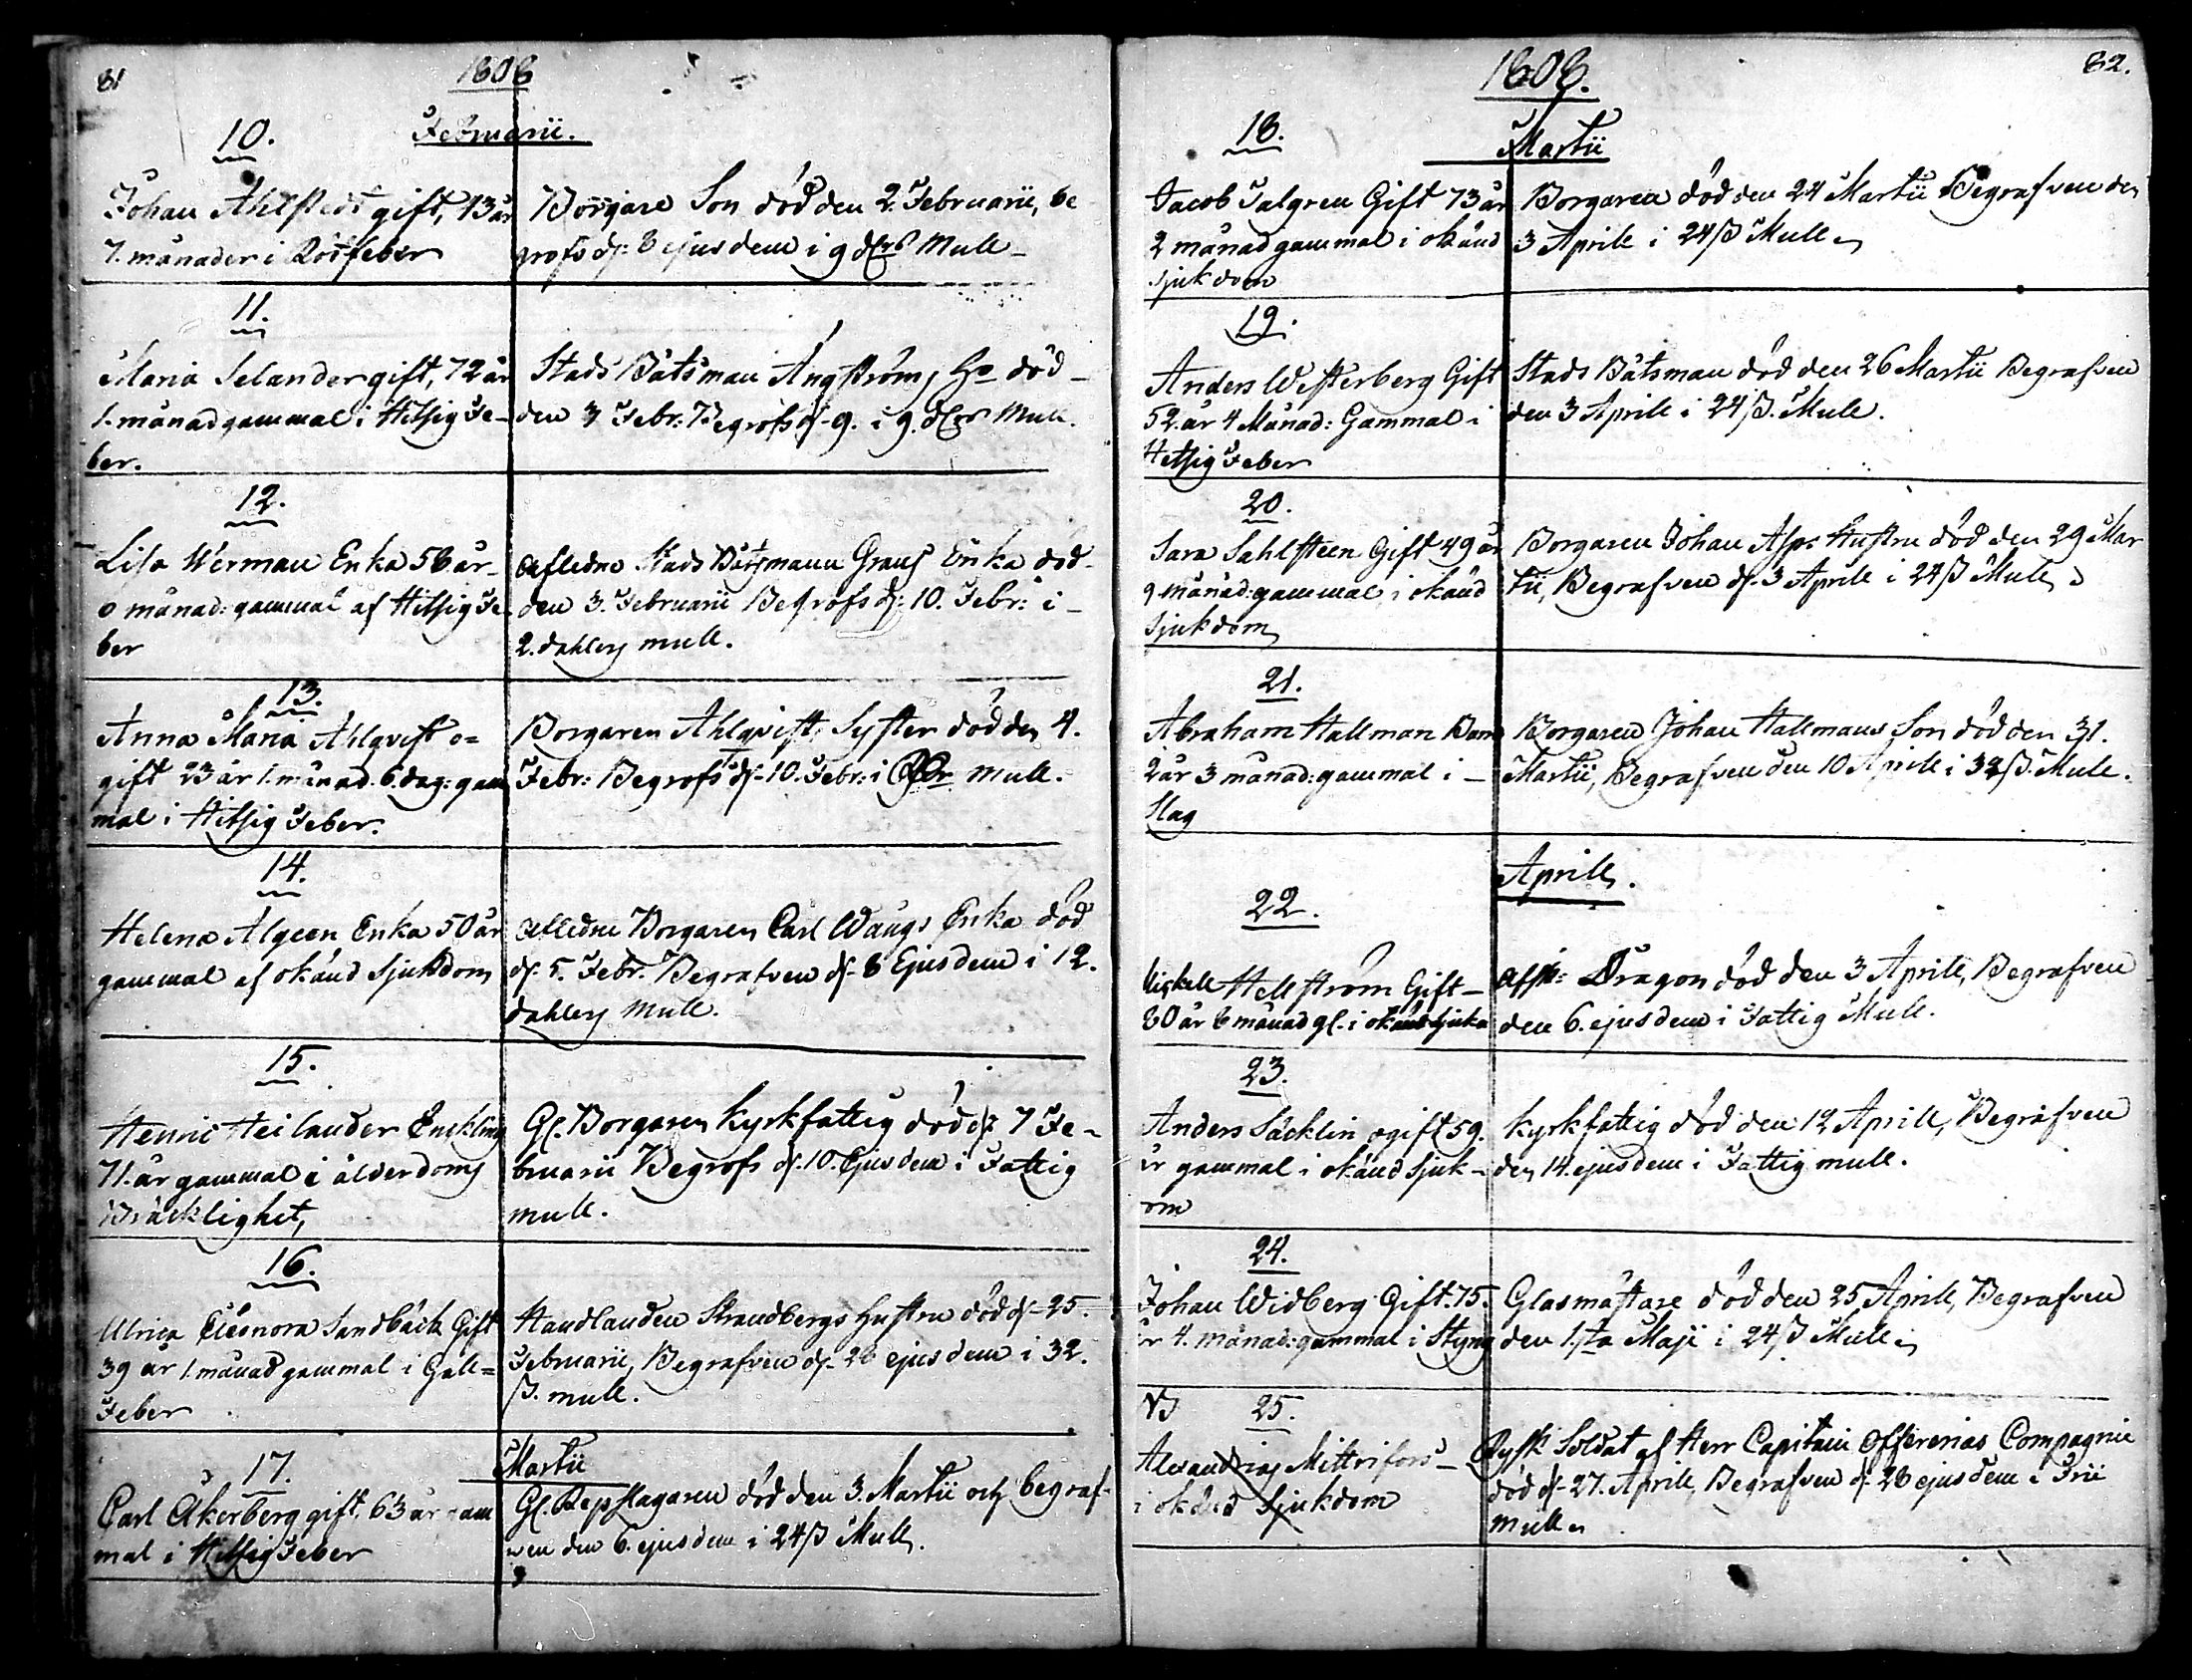 81
1808
Februarii.
10.
Johan Ahlstedt gift, 73 år
7. månader i Rötfeber
Borgare Son död den 2. Februarii, be
grofs d: 8 ejusdem i 9 dlrs Mull
11.
Maria Selander gift, 72 år
1. månad gammal i Hitsig Fe-
ber.
Stads Båtsman Ångström, Ho död
den 3 Febr: Begrofs d. 9. i 9. dlrs Mull.
12.
Lisa Werman Enka 58 år
0 månad: gammal af Hitsig Fe-
ber
afledne Stads Båtsmann Grans Enka död
den 3. Februarii Begrofs d: 10. Febr: i
2. dahlers mull.
13.
Anna Maria Ahlqvist o=
gift 23 år 1. månad. 6. dag: gam
mal i Hitsig Feber.
Borgaren Ahlqvists Syster död den 4.
Febr: Begrofs d. 10. Febr: i mull.
14.
Helena Algeen Enka 50 år
gammal af okänd Sjukdom
afledne Borgaren Carl Waugs Enka död
d. 5. Febr. Begrafven d. 8 Ejusdem i 12.
dahlers Mull.
15.
Henric Heilander Enckling
71. år gammal i ålderdoms
Bräcklighet,
Gl. Borgaren kyrkfattig död d: 7 Fe-
bruarii Begrofs d. 10. Ejusdem i Fattig
mull.
16.
Ulrica Eleonora Sandbäck Gift
39 år 1. månad gammal i Gall=
Feber
Handlanden Strandbergs Hustru död d. 25.
Februarii, Begrafven d. 28 ejusdem i 32.
ß. mull.
17.
Martii
Carl Åkerberg gift. 63 år gam
mal i Hitsig Feber
Gl. Repslagaren död den 3. Martii och begraf-
ven den 6. ejusdem i 24 ß Mull.
1808.
82.
18.
Martii
Jacob Talgren Gift 73 år
2 månad gammal i okänd
sjukdom
Borgaren död den 24 Martii Begrafven den
3 Aprill i 24 ß Mull
19.
Anders Westerberg Gift
52. år 4 Månad: Gammal i
Hetsig Feber
Stads Båtsman död den 26 Martii Begrafven
den 3 Aprill i 24 ß. Mull.
20.
Sara Sahlsteen Gift 49 år
9 månad: gammal i okänd
Sjukdom
Borgaren Johan Asps Hustru död den 29 Mar
tii, Begrafven d. 3 Aprill i 24 ß Mull
21.
Abraham Hallman Barn
2 år 3 månad: gammal i
Slag
Borgaren Johan Hallmans Son död den 31.
Martii, Begrafven den 10 Aprill i 32 ß. Mull.
Aprill.
22.
Michell Hellström Gift
80 år 8 månad gl. i okänd Sjuka
Afsk: Dragon död den 3 Aprill, Begrafven
den 6. ejusdem i Fattig Mull.
23.
Anders Säcklin ogift 59.
år gammal i okänd Sjuk-
om
kyrkfattig död den 12 Aprill, Begrafven
den 14. ejusdem i Fattig mull.
24.
Johan Widberg Gift. 75.
år 4. månad: gammal i Styng
Glasmästare död den 25 Aprill, Begrafven
den 1sta Maji i 24 ß Mull
25.
Mittrifors
i okänd Sjukdom
Rysk Soldat af Herr Capitain Compagnie
död d. 27. Aprill, Begrafven d. 28 ejusdem i Frii
mull